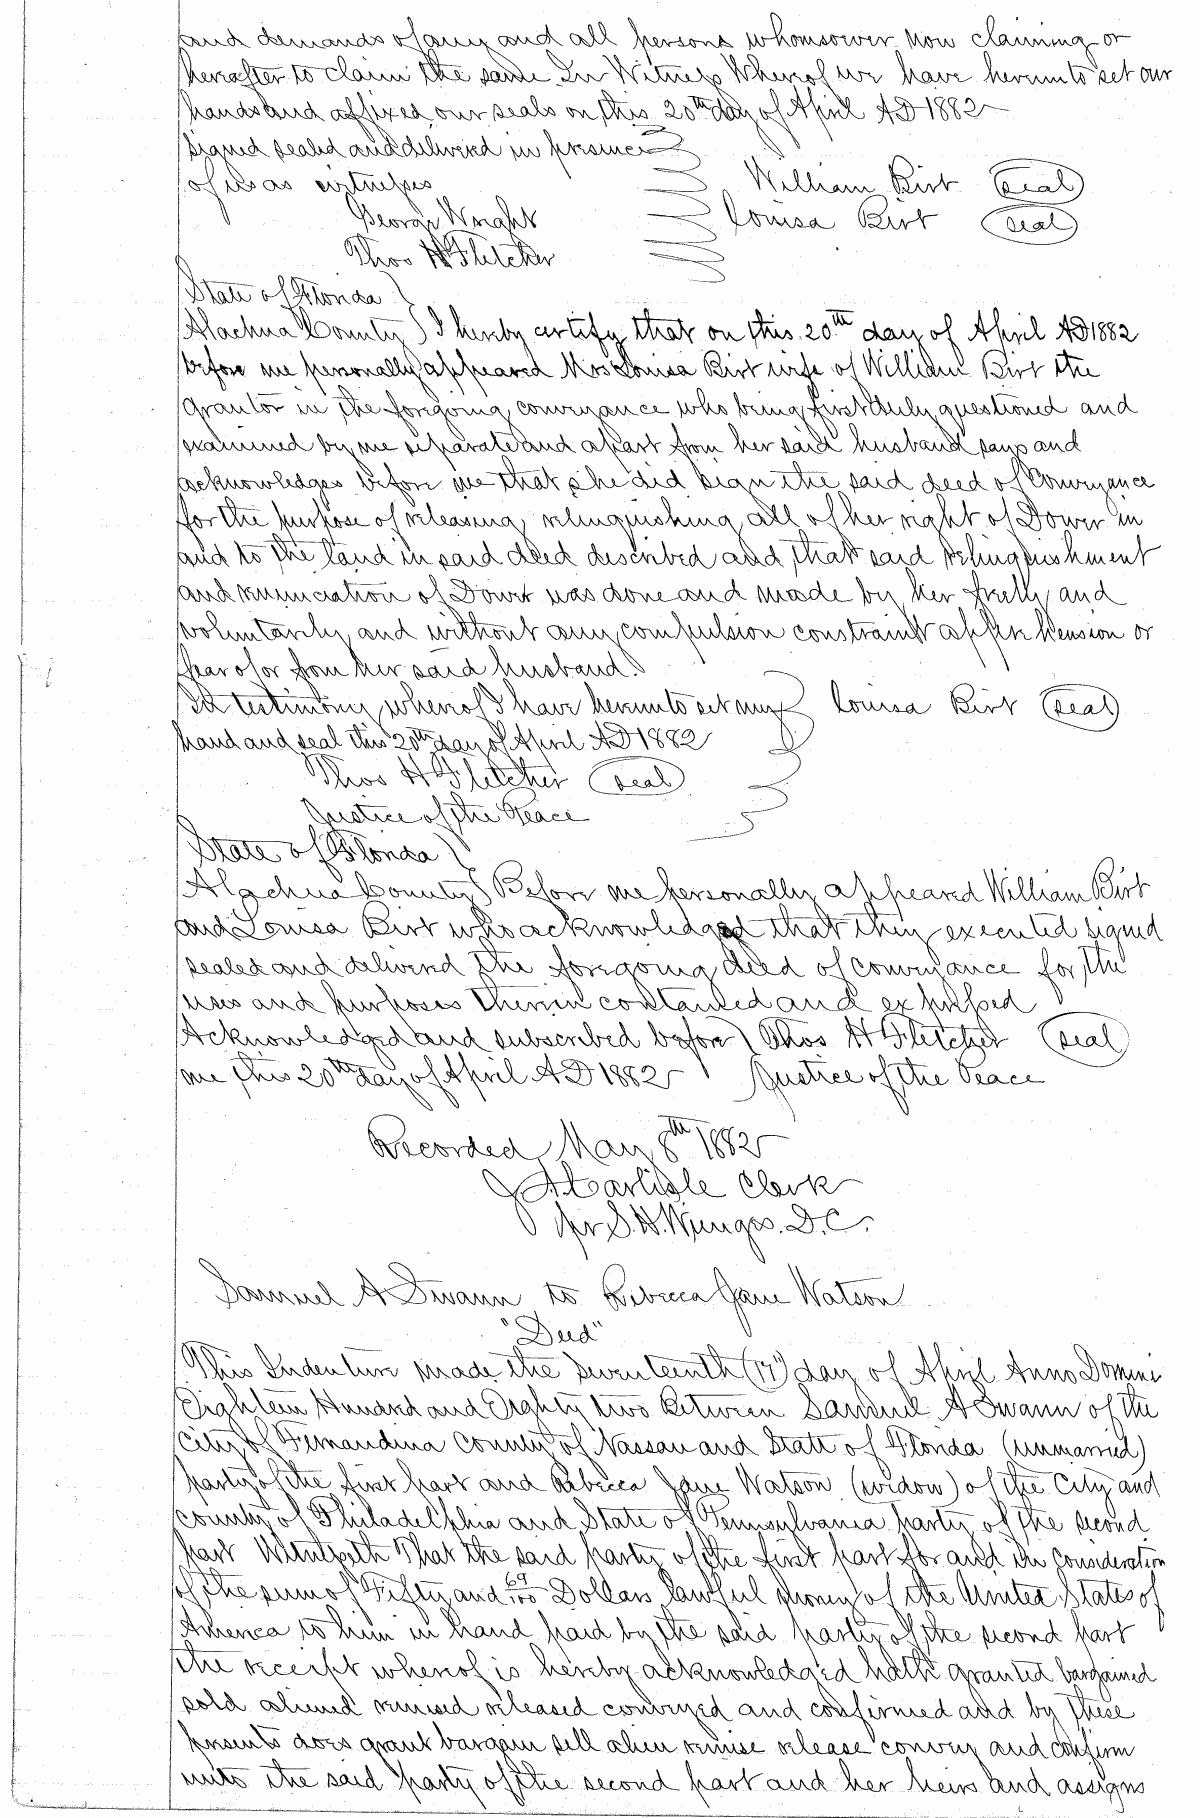 and demands of any and all persons whomsoever now claiming or
hereafter to claim the same In Witness Whereof we have hereunto set our
hands and affixed our seals on this 20th day of April AD 1882
Signed sealed and delivered in presence
of us as witnesses William Birt (seal)
George Wright Louisa Birt (seal)
Thos H Fletcher
State of Florida
Alachua County I hereby certify that on this 20th day of April AD 1882
before me personally appeared Mrs Louisa Birt wife of William Birt the
Grantor in the foregoing conveyance who being first duly questioned and
examined by me separate and apart from her said husband says and
acknowledges before me that she did sign the said deed of Conveyance
for the purpose of releasing relinquishing all of her right of Dower in
and to the land in said deed described and that said relinquishment
and renunciation of Dower was done and made by her freely and
voluntarily and without any compulsion constraint apprehension or
fear of or from her said husband.
In testimony whereof I have hereunto set my Louisa Birt (seal)
hand and seal this 20th day of April AD 1882
Thos H Fletcher (seal)
Justice of the Peace
State of Florida
Alachua County Before me personally appeared William Birt
and Louisa Birt who acknowledged that they executed signed
sealed and delivered the foregoing deed of conveyance for the
uses and purposes therein contained and expressed
Acknowledged and subscribed before Thos H Fletcher (seal)
me this 20th day of April AD 1882 Justice of the Peace
Recorded May 8th 1882
J A Carlisle Clerk
pr S. H. D.C.
Samuel A Swann to Rebecca Jane Watson
"Deed"
This Indenture made the Seventeenth (17") day of April Anno Domini
Eighteen Hundred and Eighty two Between Samuel A Swann of the
City of Fernandina County of Nassau and State of Florida (unmarried)
party of the first part and Rebecca Jane Watson (widow) of the City and
county of Philadelphia and State of Pennsylvania party of the second
part Witnesseth That the said party of the first part for and in consideration
of the sum of Fifty and 69/100 Dollars lawful money of the United States of
America to him in hand paid by the said party of the second part
the receipt whereof is hereby acknowledged hath granted bargained
sold aliened remised released conveyed and confirmed and by these
presents does grant bargain sell alien remise release convey and confirm
unto the said party of the second part and her heirs and assigns